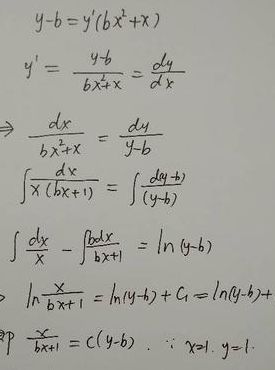 y-b=y'(bx²+x)
y' = y-b / bx²+x = dy / dx
⇒ dx / bx²+x = dy / y-b
∫ dx / x(bx+1) = ∫ d(y-b) / (y-b)
∫ dx / x - ∫ bdx / bx+1 = ln(y-b)
ln x / bx+1 = ln(y-b) + C₁ = ln(y-b)+
x / bx+1 = C(y-b). ∵ x=1. y=1.